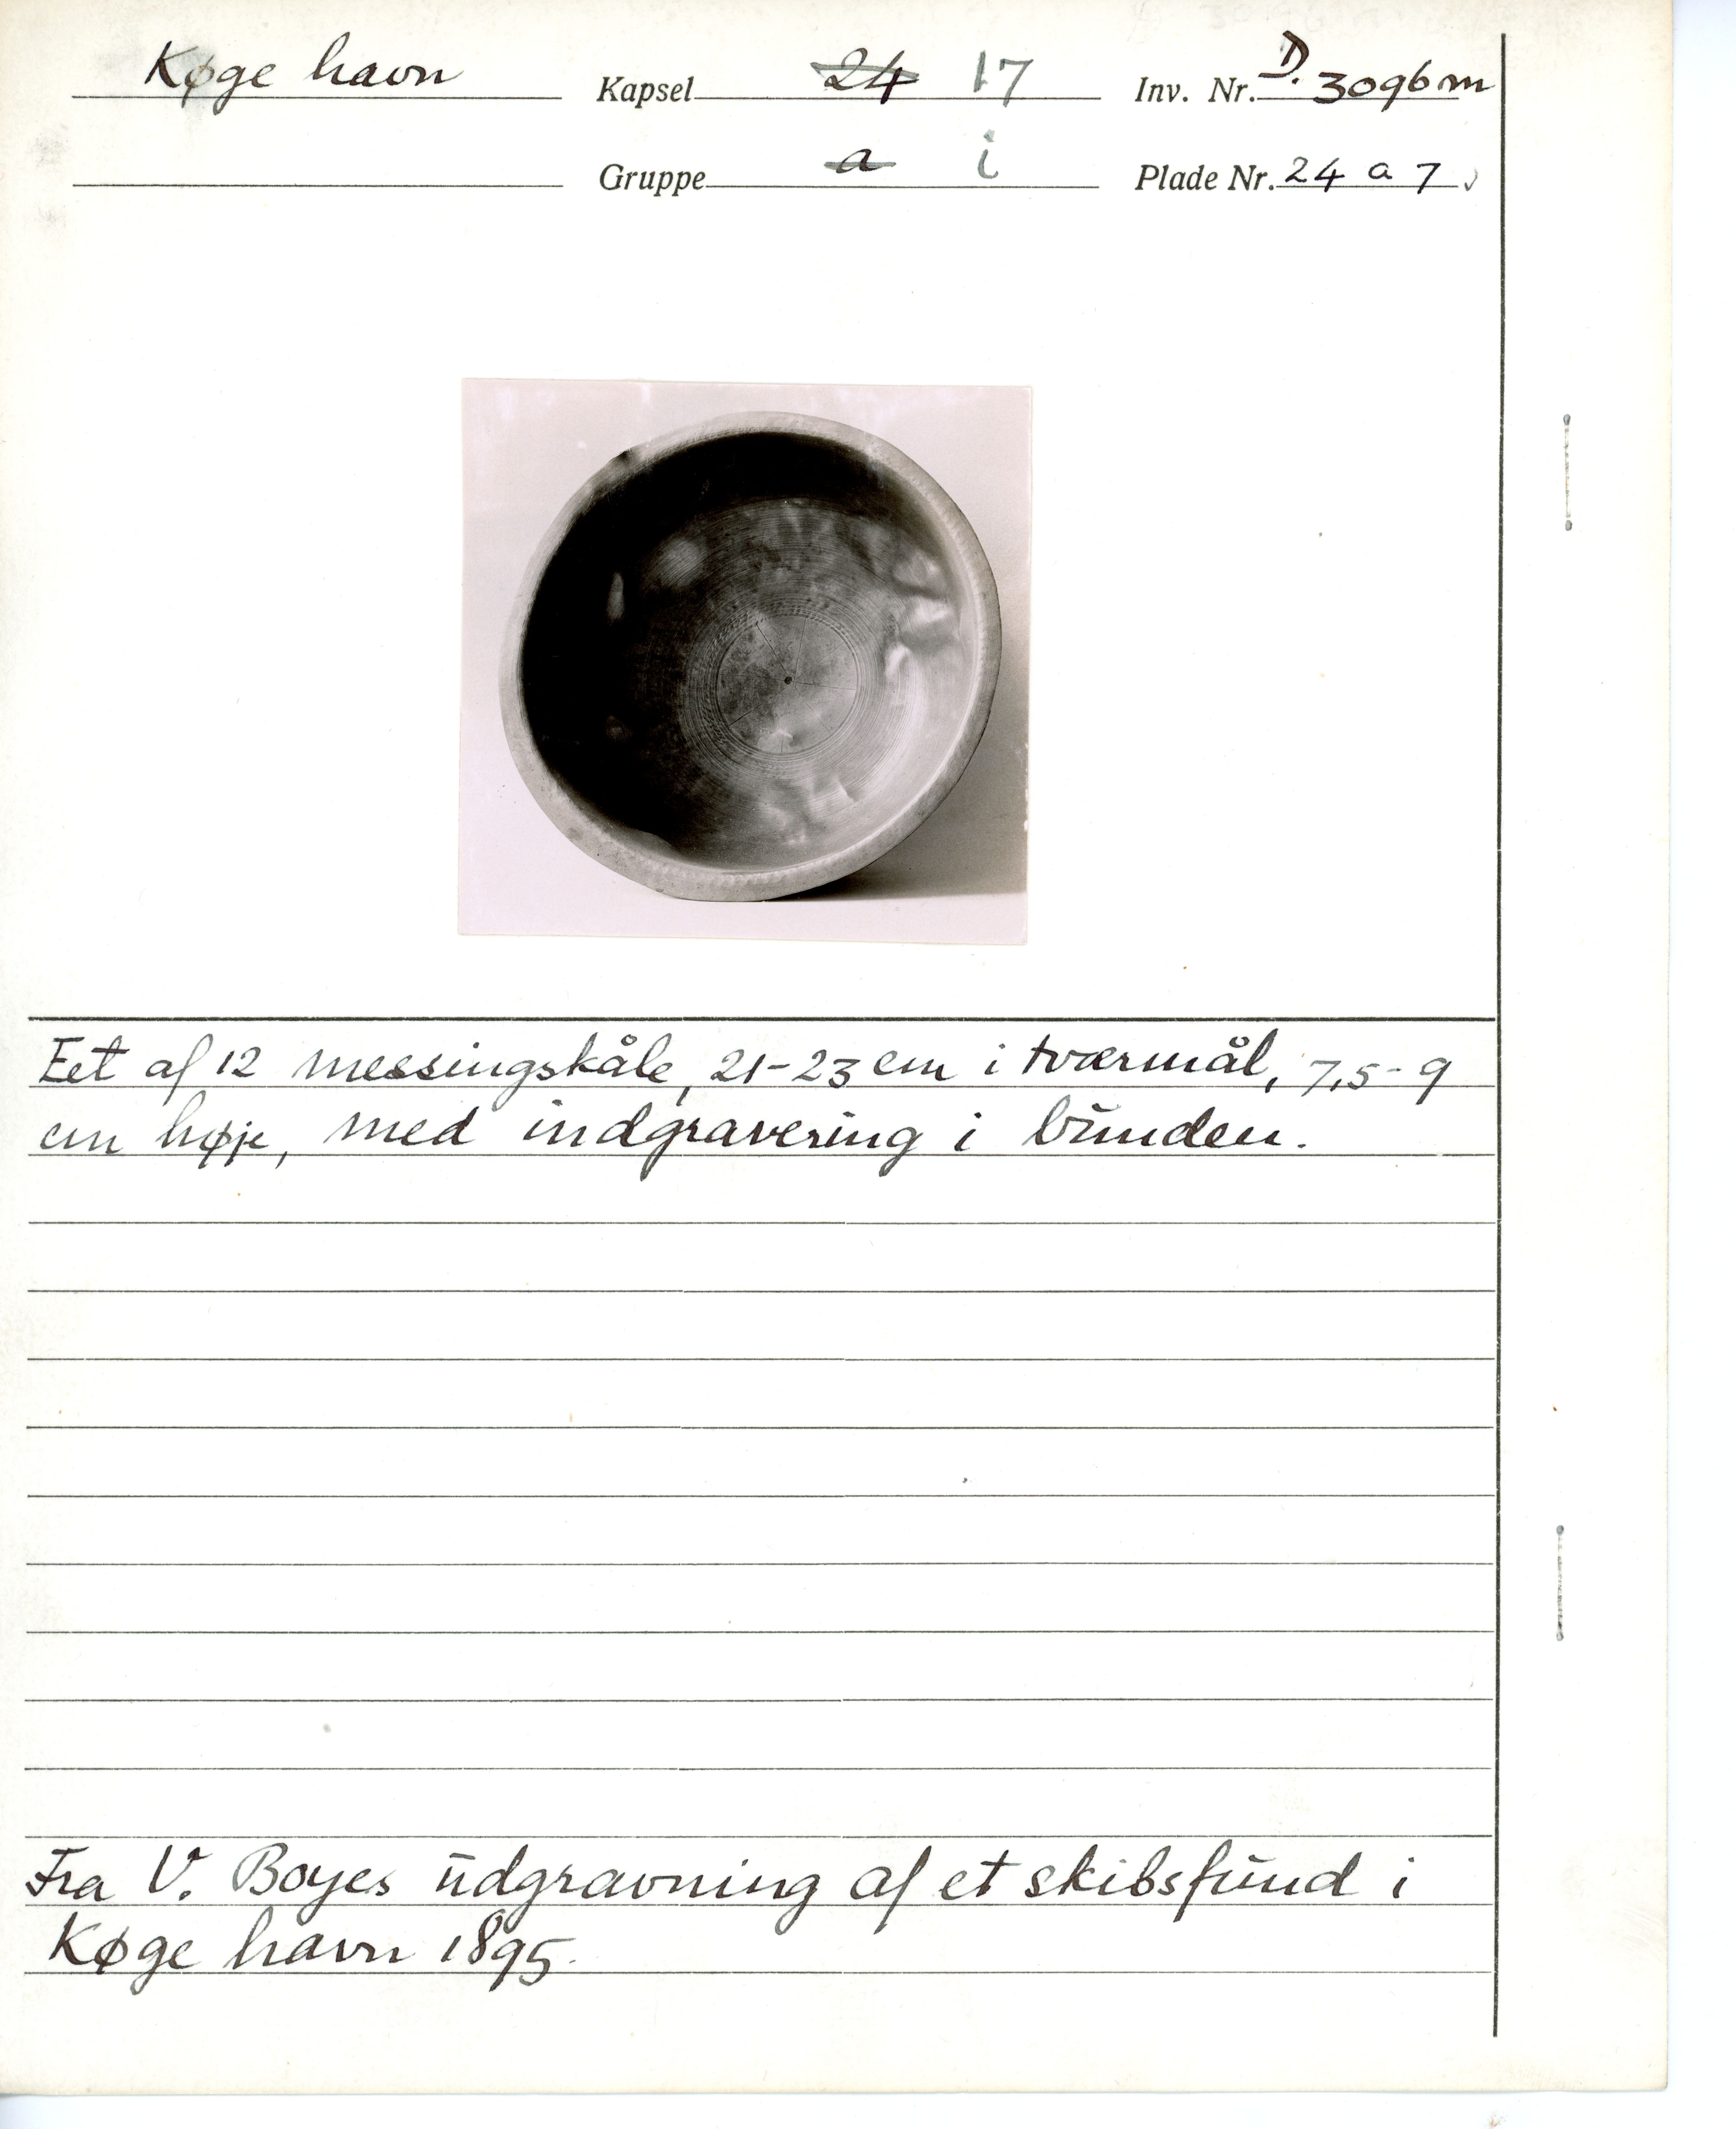 Køge havn Kapsel 24 17 Inv. Nr. D. 3096m
Gruppe a i Plade Nr. 24 a 7
Eet af 12 messingskåle, 21-23 cm i tværmål, 7,5-9
cm høje, med indgravering i bunden.
Fra V. Boyes udgravning af et skibsfund i
Køge havn 1895.